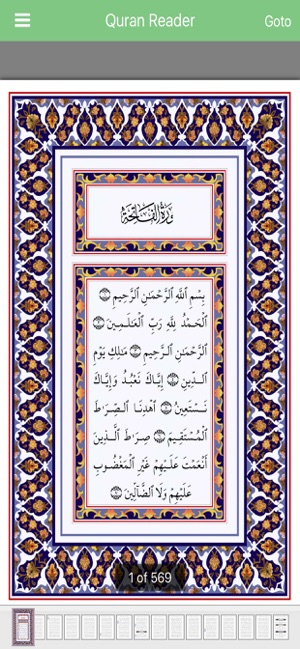 Quran Reader
Goto
سورة الفاتحة
بِسْمِ ٱللَّهِ ٱلرَّحْمَـٰنِ ٱلرَّحِيمِ ۝
ٱلْحَمْدُ لِلَّهِ رَبِّ ٱلْعَـٰلَمِينَ ۝
ٱلرَّحْمَـٰنِ ٱلرَّحِيمِ ۝ مَـٰلِكِ يَوْمِ
ٱلدِّينِ ۝ إِيَّاكَ نَعْبُدُ وَإِيَّاكَ
نَسْتَعِينُ ۝ ٱهْدِنَا ٱلصِّرَٰطَ
ٱلْمُسْتَقِيمَ ۝ صِرَٰطَ ٱلَّذِينَ
أَنْعَمْتَ عَلَيْهِمْ غَيْرِ ٱلْمَغْضُوبِ
عَلَيْهِمْ وَلَا ٱلضَّآلِّينَ ۝
1 of 569